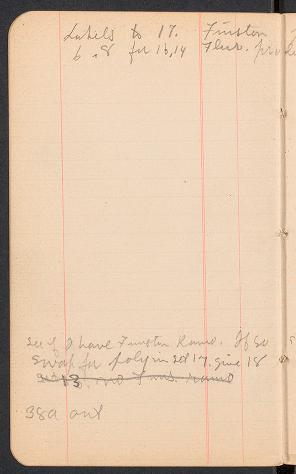 Labels to 17. Funston
6, 8 for 16, 14
see if I have Funston Ramo. If so
swap for poly in sd 17. give 18
38a out